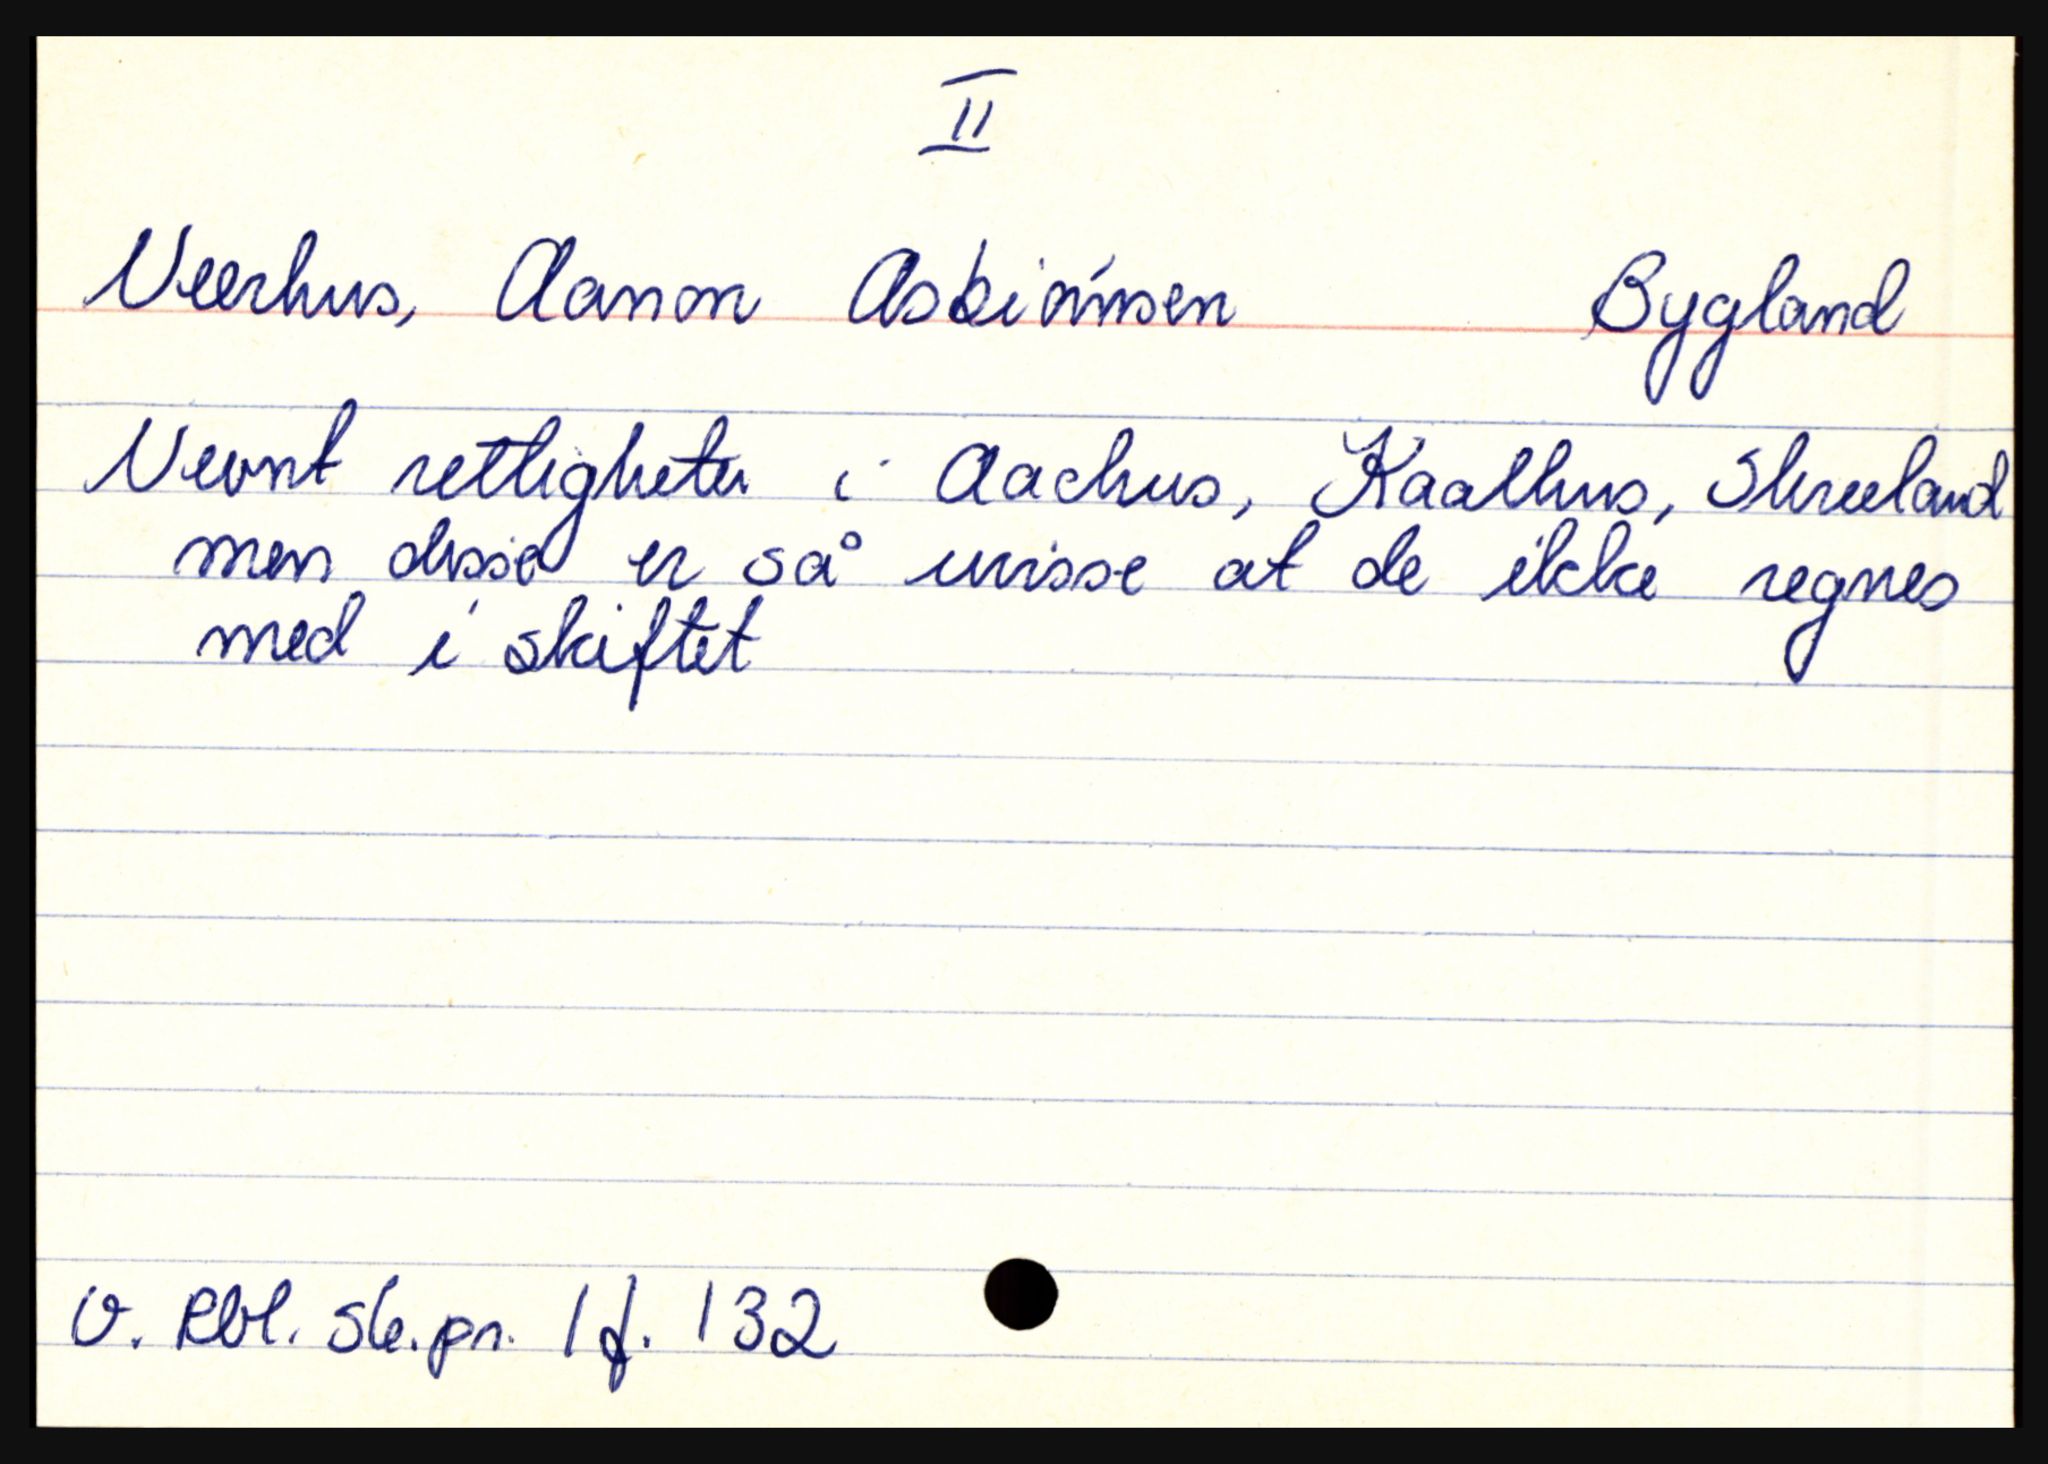 II
Veerhus, Aanon Asbiønnsen Bygland
Nevnt rettigheter i Aachus, Kaalhus, Skreeland
men disse er så uvisse at de ikke regnes
med i skiftet
V. Rbl. sk.pr. 1 f. 132